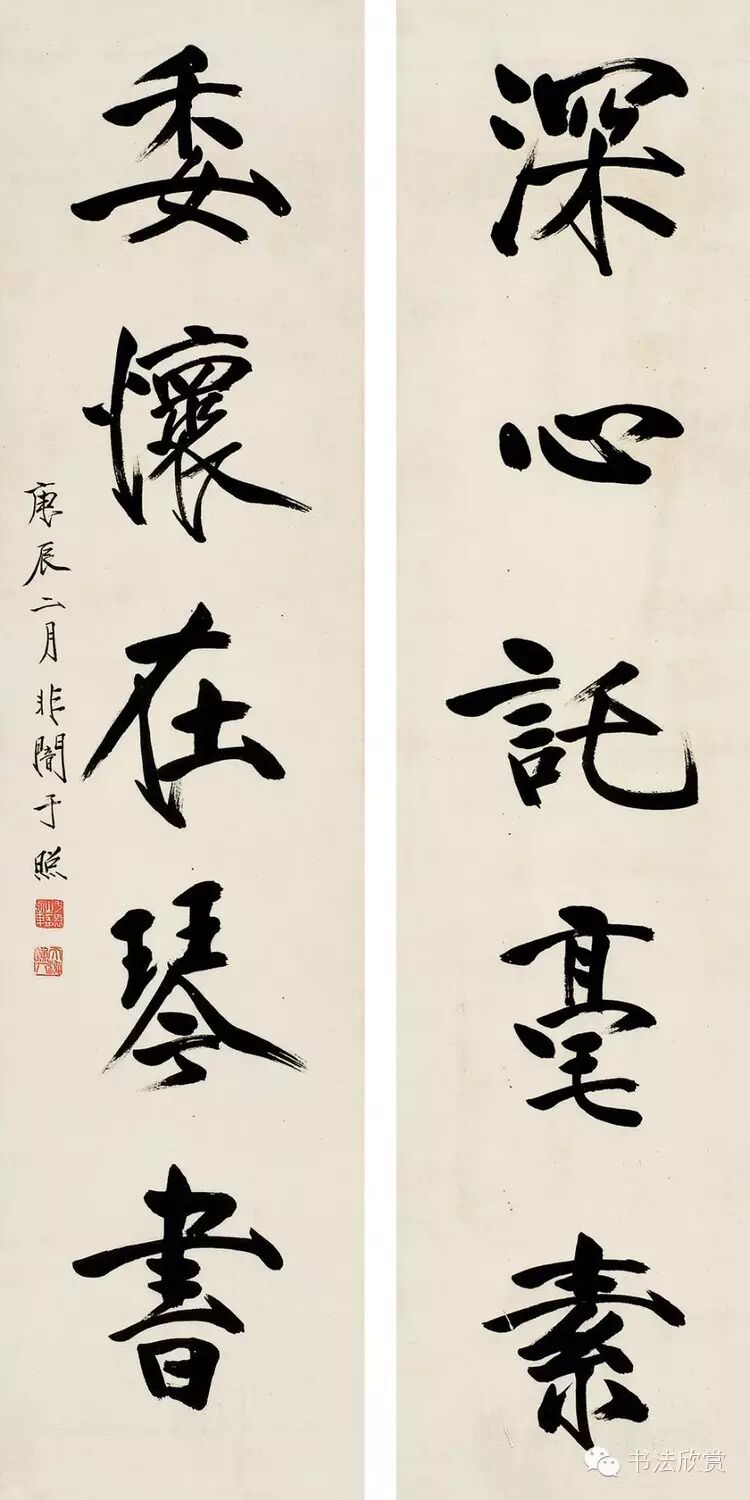 深心託毫素
委懷在琴書
庚辰二月非闇于照
书法欣赏